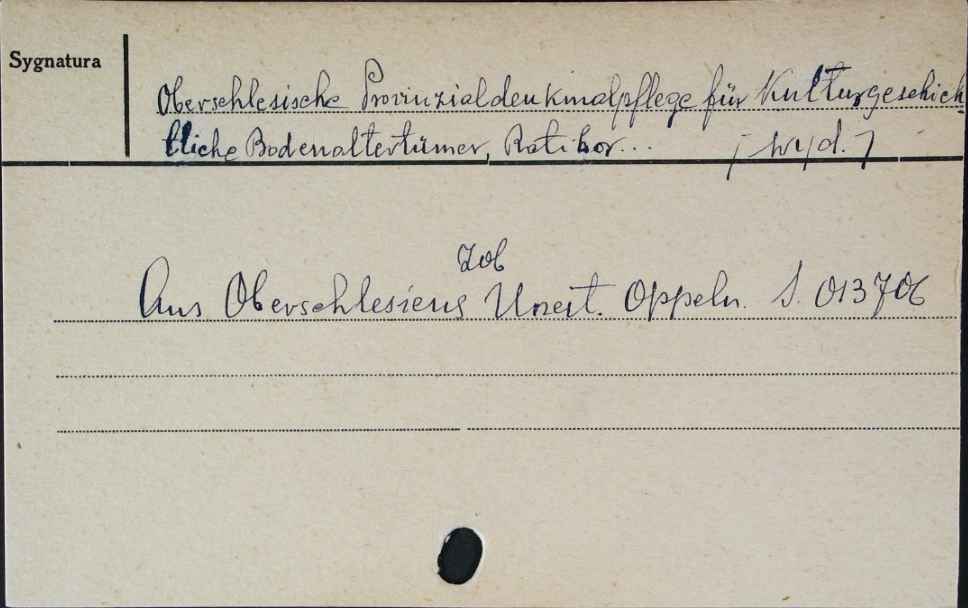 Sygnatura
Oberschlesische Provinzialdenkmalpflege für Kulturgeschich
tliche Bodenaltertümer, Ratibor... [wyd.]
Zob
Aus Oberschlesiens Urzeit. Oppeln. S. 013706